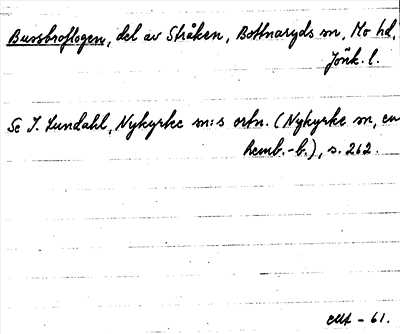 Bussbroflogen, del av Stråken, Bottnaryds sn, Mo hd,
Jönk. l.
Se I. Lundahl, Nykyrke sn:s ortn. (Nykyrke sn, en
Remb.-b.), s. 262.
- 61.